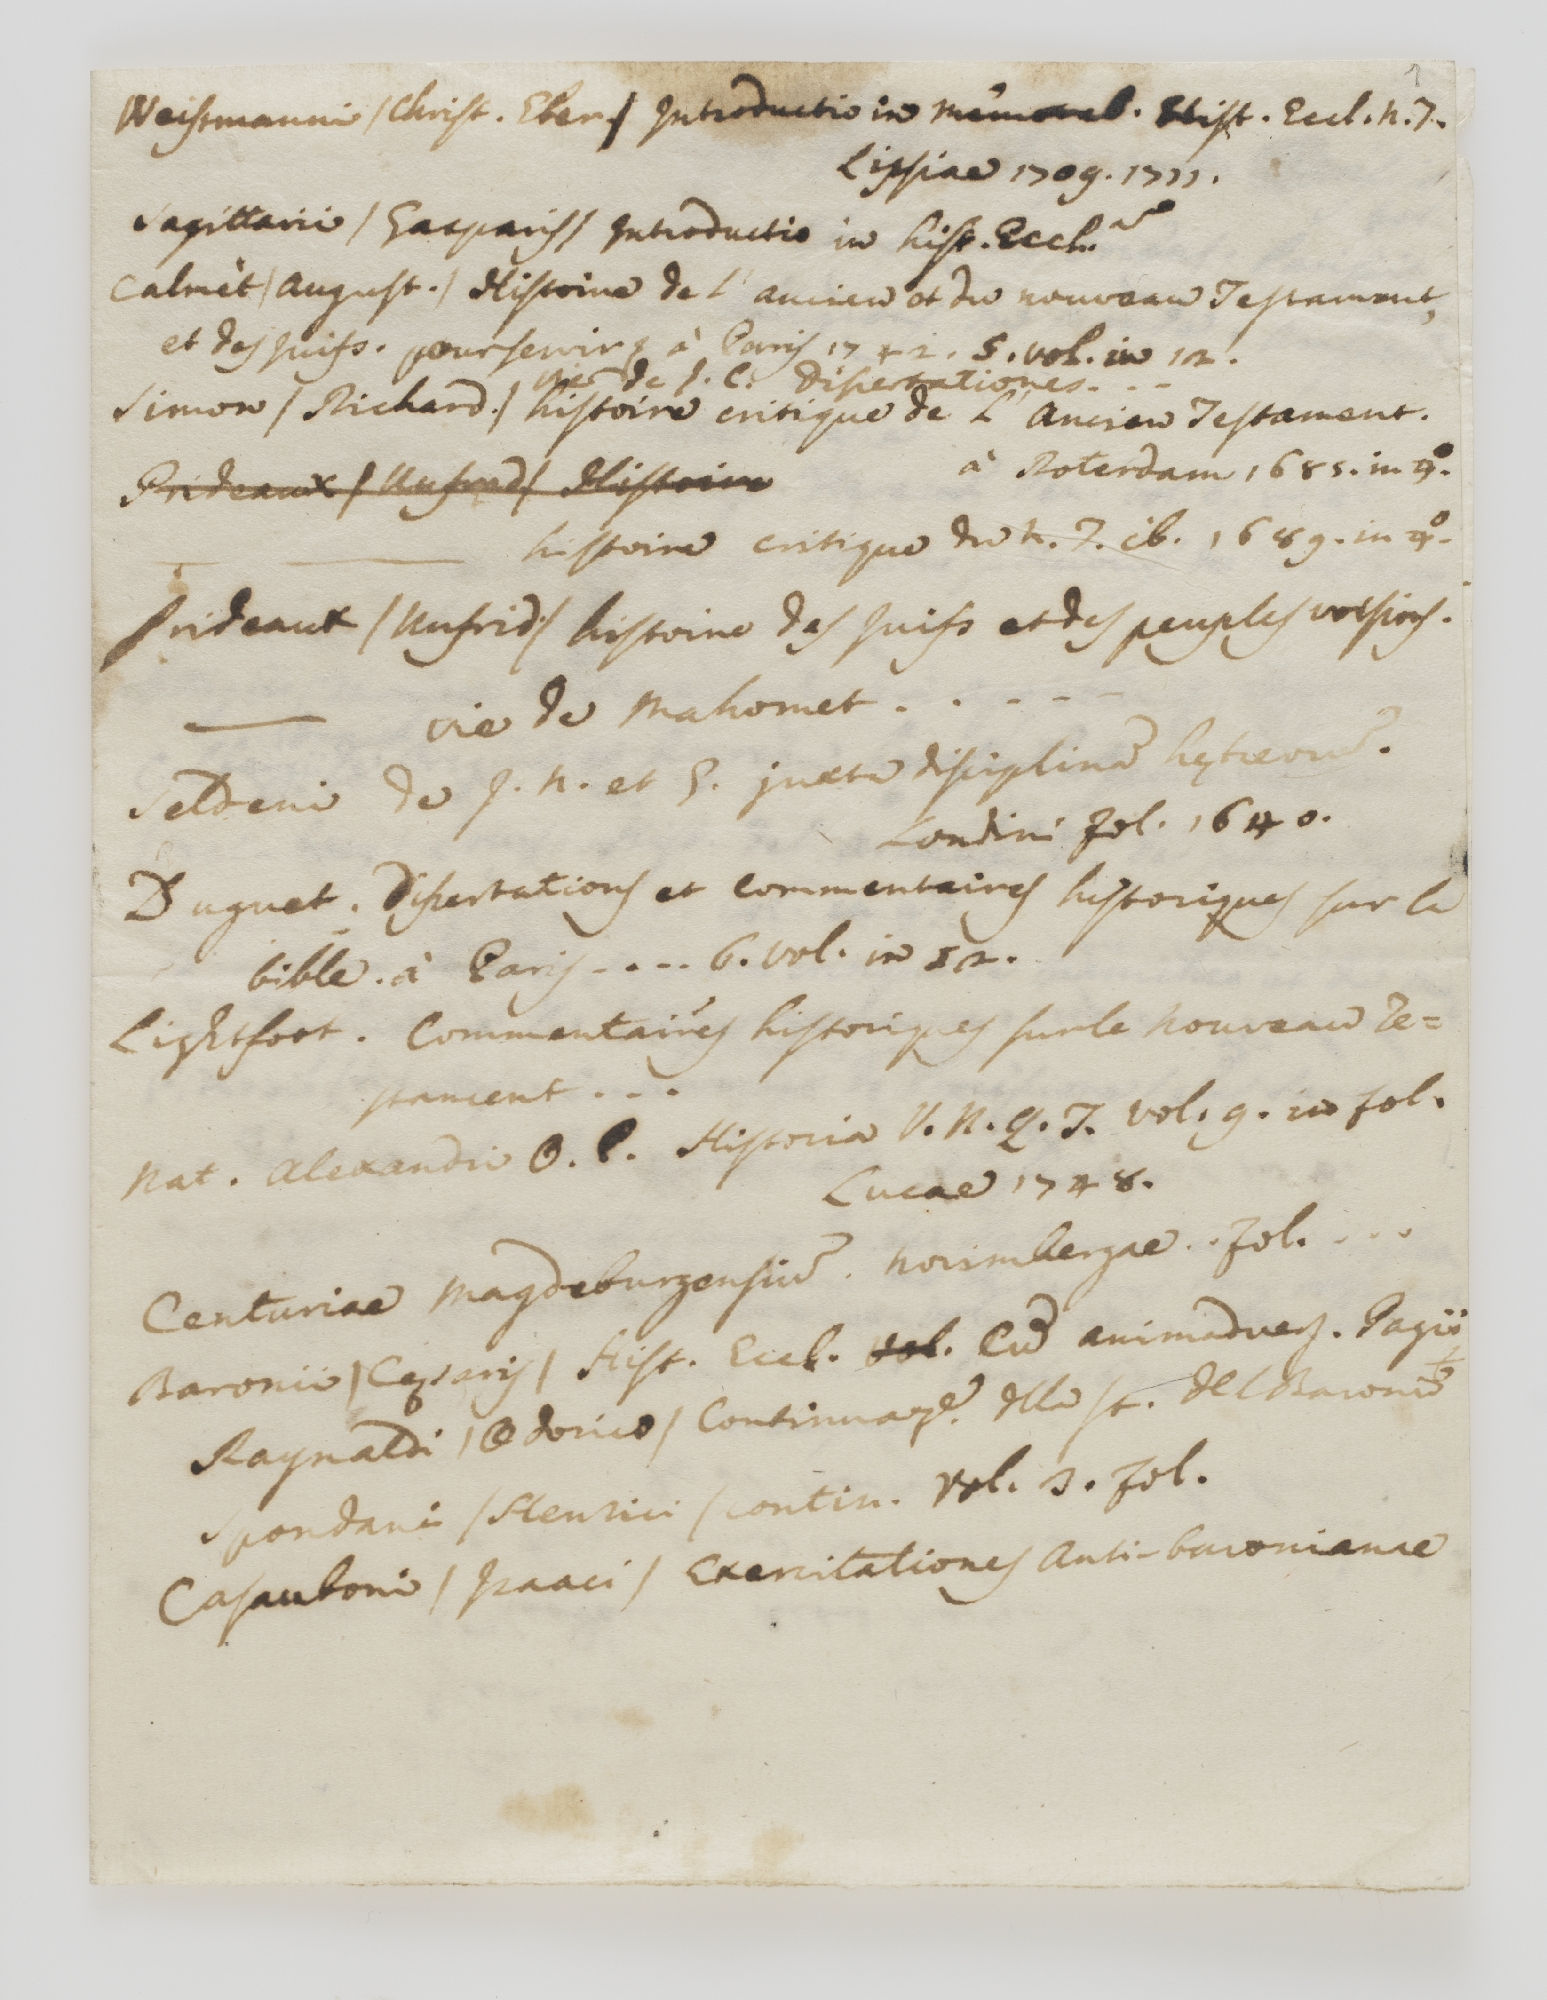 Weissmanni /Christ. Eber./ Introductio in memorab. Hist. Eccl. N. T.
Lipsiae 1709. 1711.
Sagittarii /Gasparis/ Introductio in hist. Eccl.
Calmet /August./ Histoire de L' ancien et du nouveau Testament,
et des juifs. pour servir à Paris 1742. 5. vol. in 12.
vie de J. C. Dissertationes. . .
Simon / Richard./ histoire critique de L' Ancien Testament.
à Roterdam 1685. in 4º.
Prideaux / Unfred/ Histoire
histoire critique du N. T. ib. 1689. in 4º.
Prideaux /Unfrid/ histoire des juifs et des peuples voisins.
vie de Mahomet . . . . .
Seldeni de J. N. et G. juxta disciplinã hebreorũ.
Londini fol. 1640.
Duguet. Dissertations et commentaires historiques sur la
bible. à Paris . . . . 6. vol. in 12.
Lightfoot. Commentaires historiques sur le nouveau Te=
stament . . .
Nat. Alexandri O. P. Historia V. N. Q. T. vol. 9. in fol.
Lucae 1748.
Centuriae Magdeburgensiũ. Norimbergae . . fol. . . .
Baronii /Cęsaris/ Hist. Eccl. vol. Cũ animadvers. Pagii
Raynaldi /Odorico/ Continuaze. dlla st. del Baronio
Spondani /Henrici /contin. vol. 3. fol.
Casauboni / Isaaci / Exercitationes Anti-baronianae